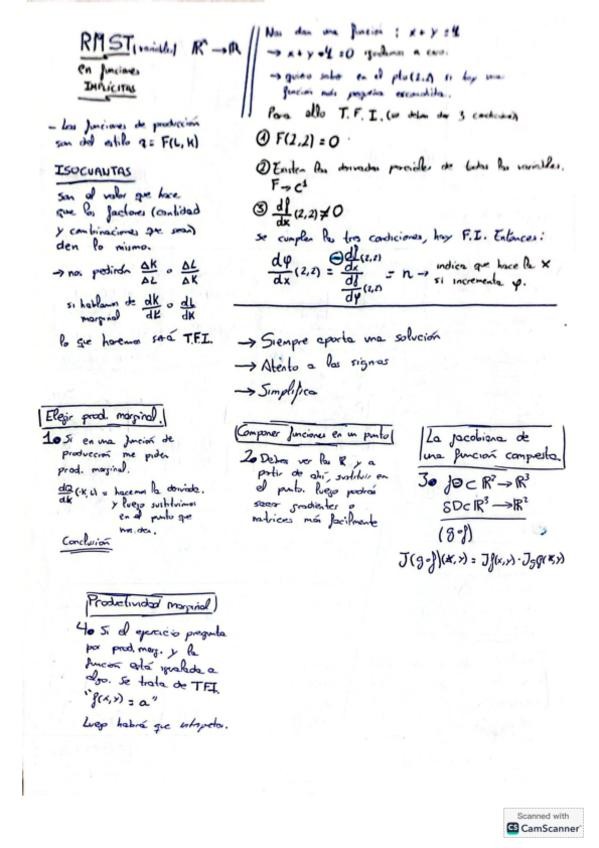 RMST (variables) ℝⁿ → ℝ
en funciones
IMPLÍCITAS
- Las funciones de producción
son del estilo q = F(L, K)
ISOCUANTAS
son el valor que hace
que los factores (cantidad
y combinaciones que sean)
den lo mismo.
→ nos pedirán ΔK/ΔL o ΔL/ΔK
si hablamos de
marginal
lo que haremos será T.F.I.
Nos dan una función : x + y = 4
→ x + y - 4 = 0 igualamos a cero.
→ quiero saber en el pto (2,2) si hay una
función más pequeña escondida.
Para ello T.F.I. (se deben dar 3 condiciones)
① F(2,2) = 0
② Existen las derivadas parciales de todas las variables.
F → C¹
③ df/dx (2,2) ≠ 0
se cumplen las tres condiciones, hay F.I. Entonces:
dφ/dx (2,2) = - df/dx (2,2) / df/dφ (2,2) = n → indica que hace la x
si incrementa φ.
→ Siempre aporta una solución
→ Atento a los signos
→ Simplifica
Elegir prod. marginal.
1• Si en una función de
producción me piden
prod. marginal.
dQ/dK (K, L) = hacemos la derivada.
y luego sustituimos
en el punto que
nos den.
Conclusión
Componer funciones en un punto
2• Debes ver los ℝ y a
partir de ahí, sustituir en
el punto. Luego podrás
sacar gradientes o
matrices más facilmente
La jacobiana de
una función compuesta.
3• ℝ² → ℝ³
ℝ³ → ℝ²
(g∘f)
J(g∘f)(x,y) = Jf(x,y) ·
Productividad marginal
4• Si el ejercicio pregunta
por prod. marg. y la
función está igualada a
algo. Se trata de T.F.I.
"f(x,y) = a"
Luego habrá que interpretar.
Scanned with
CS CamScanner